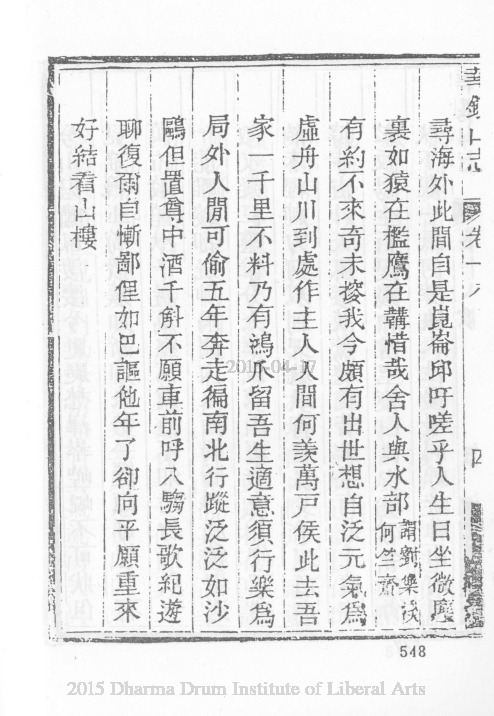 卷十八
四
尋海外此間自是崑崙邱吁嗟乎人生日坐微塵
裏如猿在檻鷹在韝惜哉舍人與水部謂劉樂溪何竺齋
有約不來奇未搜我今頗有出世想自泛元氣爲
虛舟山川到處作主人人間何羨萬戸侯此去吾
家一千里不料乃有鴻爪留吾生適意須行樂爲
局外人閒可偷五年奔走徧南北行蹤泛泛如沙
鷗但置尊中酒千斛不願車前呼八騶長歌紀遊
聊復爾自慚鄙俚如巴謳他年了卻向平願重來
好結看山樓
2015-04-17
548
2015 Dharma Drum Institute of Liberal Arts